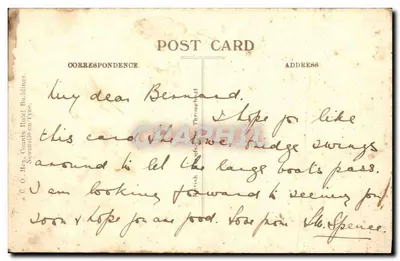 POST CARD
CORRESPONDENCE
ADDRESS
My dear Bernard.
I hope you like
this card & the lowe. bridge swings
around to let the large boats pass.
I am looking forward to seeing you
soon & hope you are good. Love from St. Spence.
C. O. Hay, County Hotel Buildings,
Newcastle-on-Tyne.
British Throughout